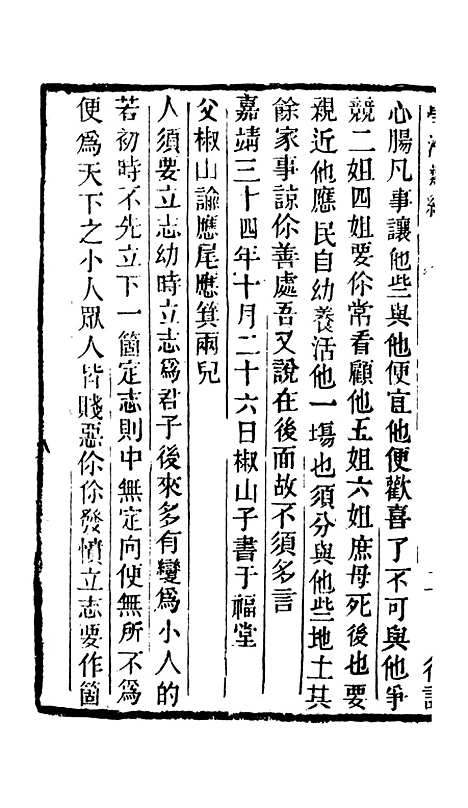 心腸凡事讓他些與他便宜他便歡喜了不可與他爭
競二姐四姐要你常看顧他五姐六姐庶母死後也要
親近他應民自幼養活他一塲也須分與他些地土其
餘家事諒你善處吾又說在後面故不須多言
嘉靖三十四年十月二十六日椒山子書于福堂
父椒山諭應尾應箕兩兒
人須要立志幼時立志爲君子後來多有變爲小人的
若初時不先立下一箇定志則中無定向便無所不爲
便爲天下之小人眾人皆賤惡你你發憤立志要作箇